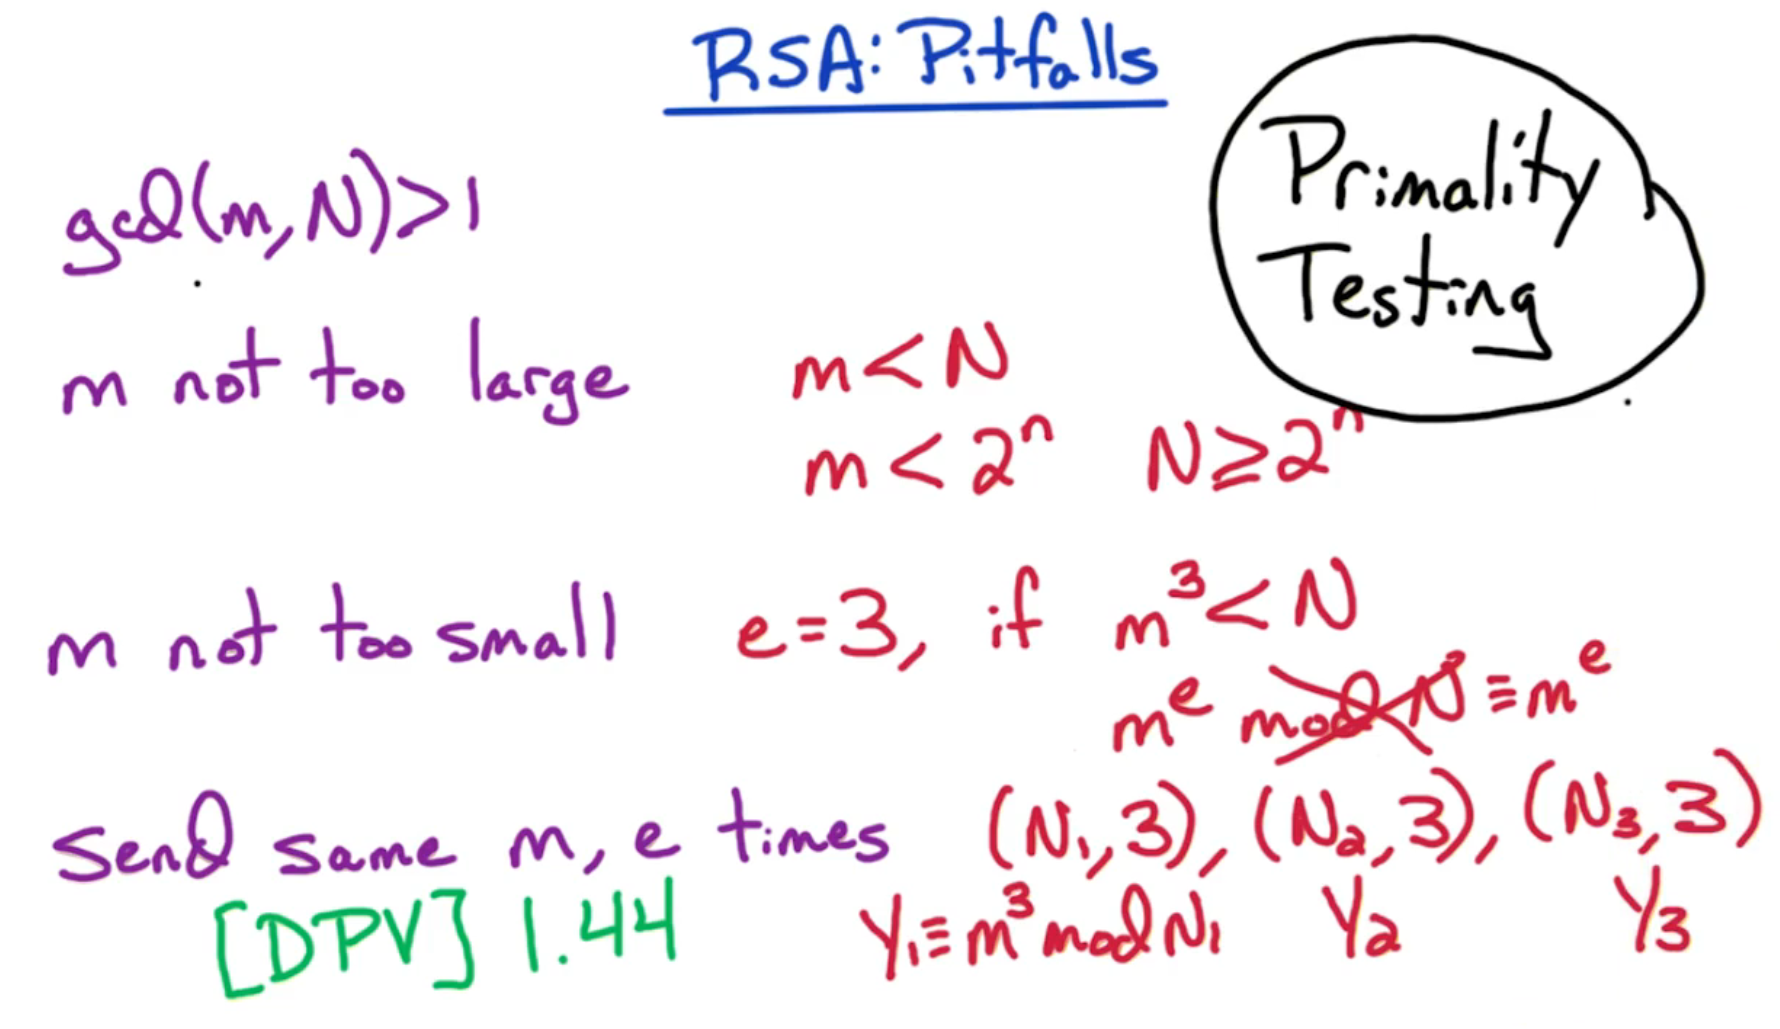 RSA: Pitfalls
Primality
Testing
gcd(m,N)>1
m not too large m<N
m<2ⁿ N≥2ⁿ
m not too small e=3, if m³<N
mᵉ mod N ≡mᵉ
Send same m, e times (N₁,3), (N₂,3), (N₃,3)
[DPV] 1.44 Y₁≡m³ mod N₁ Y₂ Y₃